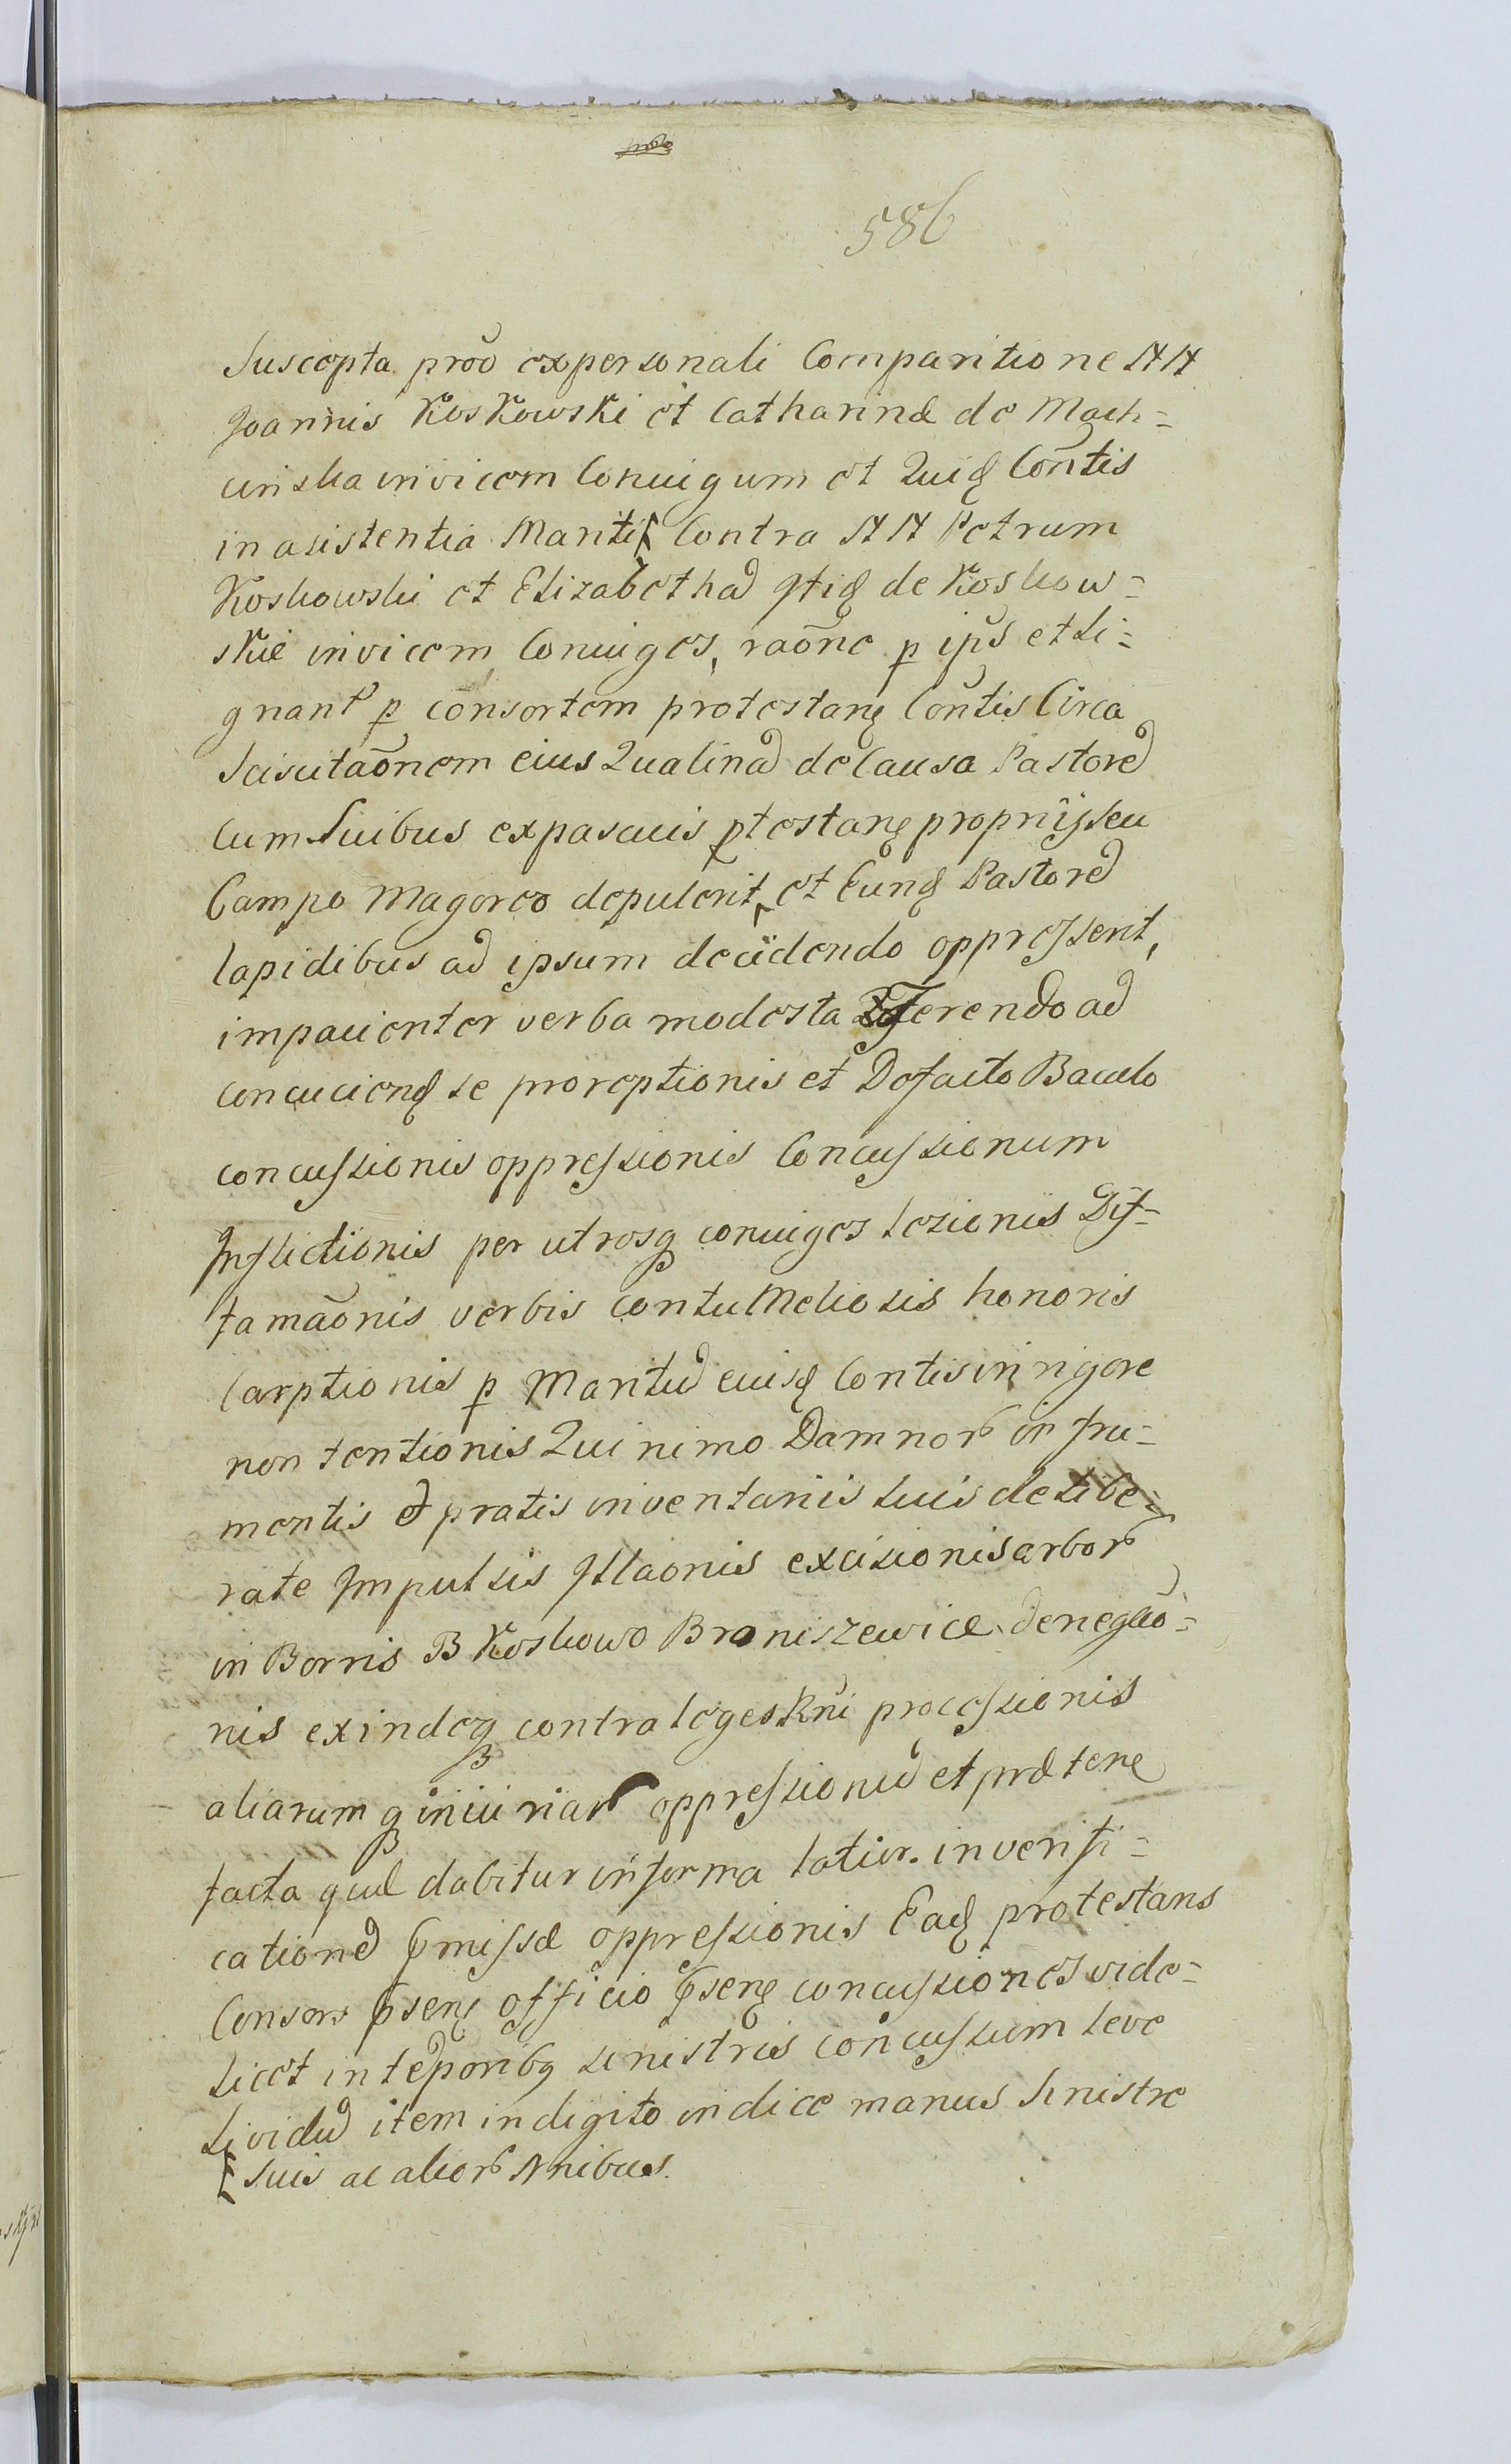 586
Suscepta prõõ ex personali Comparitione NN
Joannis Koskowski et Catharinæ de Mach=
cinska invicem Coniugum et Cõntis
in asistentia Mariti Contra NN Petrum
Koskowski et Elizabetham de Koskow=
skie invicem Coniuges, raõne p ips et si=
gnant p cõnsortem protestan Cõntis Circa
Sciscitaõnem eius Qualinam de Causa Pastorem
cum Suibus ex pascuis ptestan proprijs seu
Campo Magoreo depulerit, et Eund Pastorem
lapidibus ad ipsum deiidendo oppresserit,
impacienter verba modesta fferendo ad
concuciend se proreptionis et De facto Baculo
concussionis oppressionis Concussionum
Inflictionis per utrosq coniuges lesionis Dif=
famaõnis verbis contuMeliosis honoris
Carptionis p Maritum eiusd Contis in rigore
non tentionis Qui nimo Damnor in fru=
mentis et pratis inventariis suis delibe=
rate Impulsis Illaonis excisionis arbor
in Borris B Koskowo Braniszewice denegaõ=
nis exindeq contra leges Rni processionis
aliarum q iniuriar oppressionum et præten
facta quæ dabitur in forma latior. in verifi=
cationem pmissæ oppressionis Ead protestans
Consors psen officio psen concussiones vide=
licet in temporibq sinistris concussum leve
Lividum item in digito indice manus sinistre
suis ac alior Nnibus.